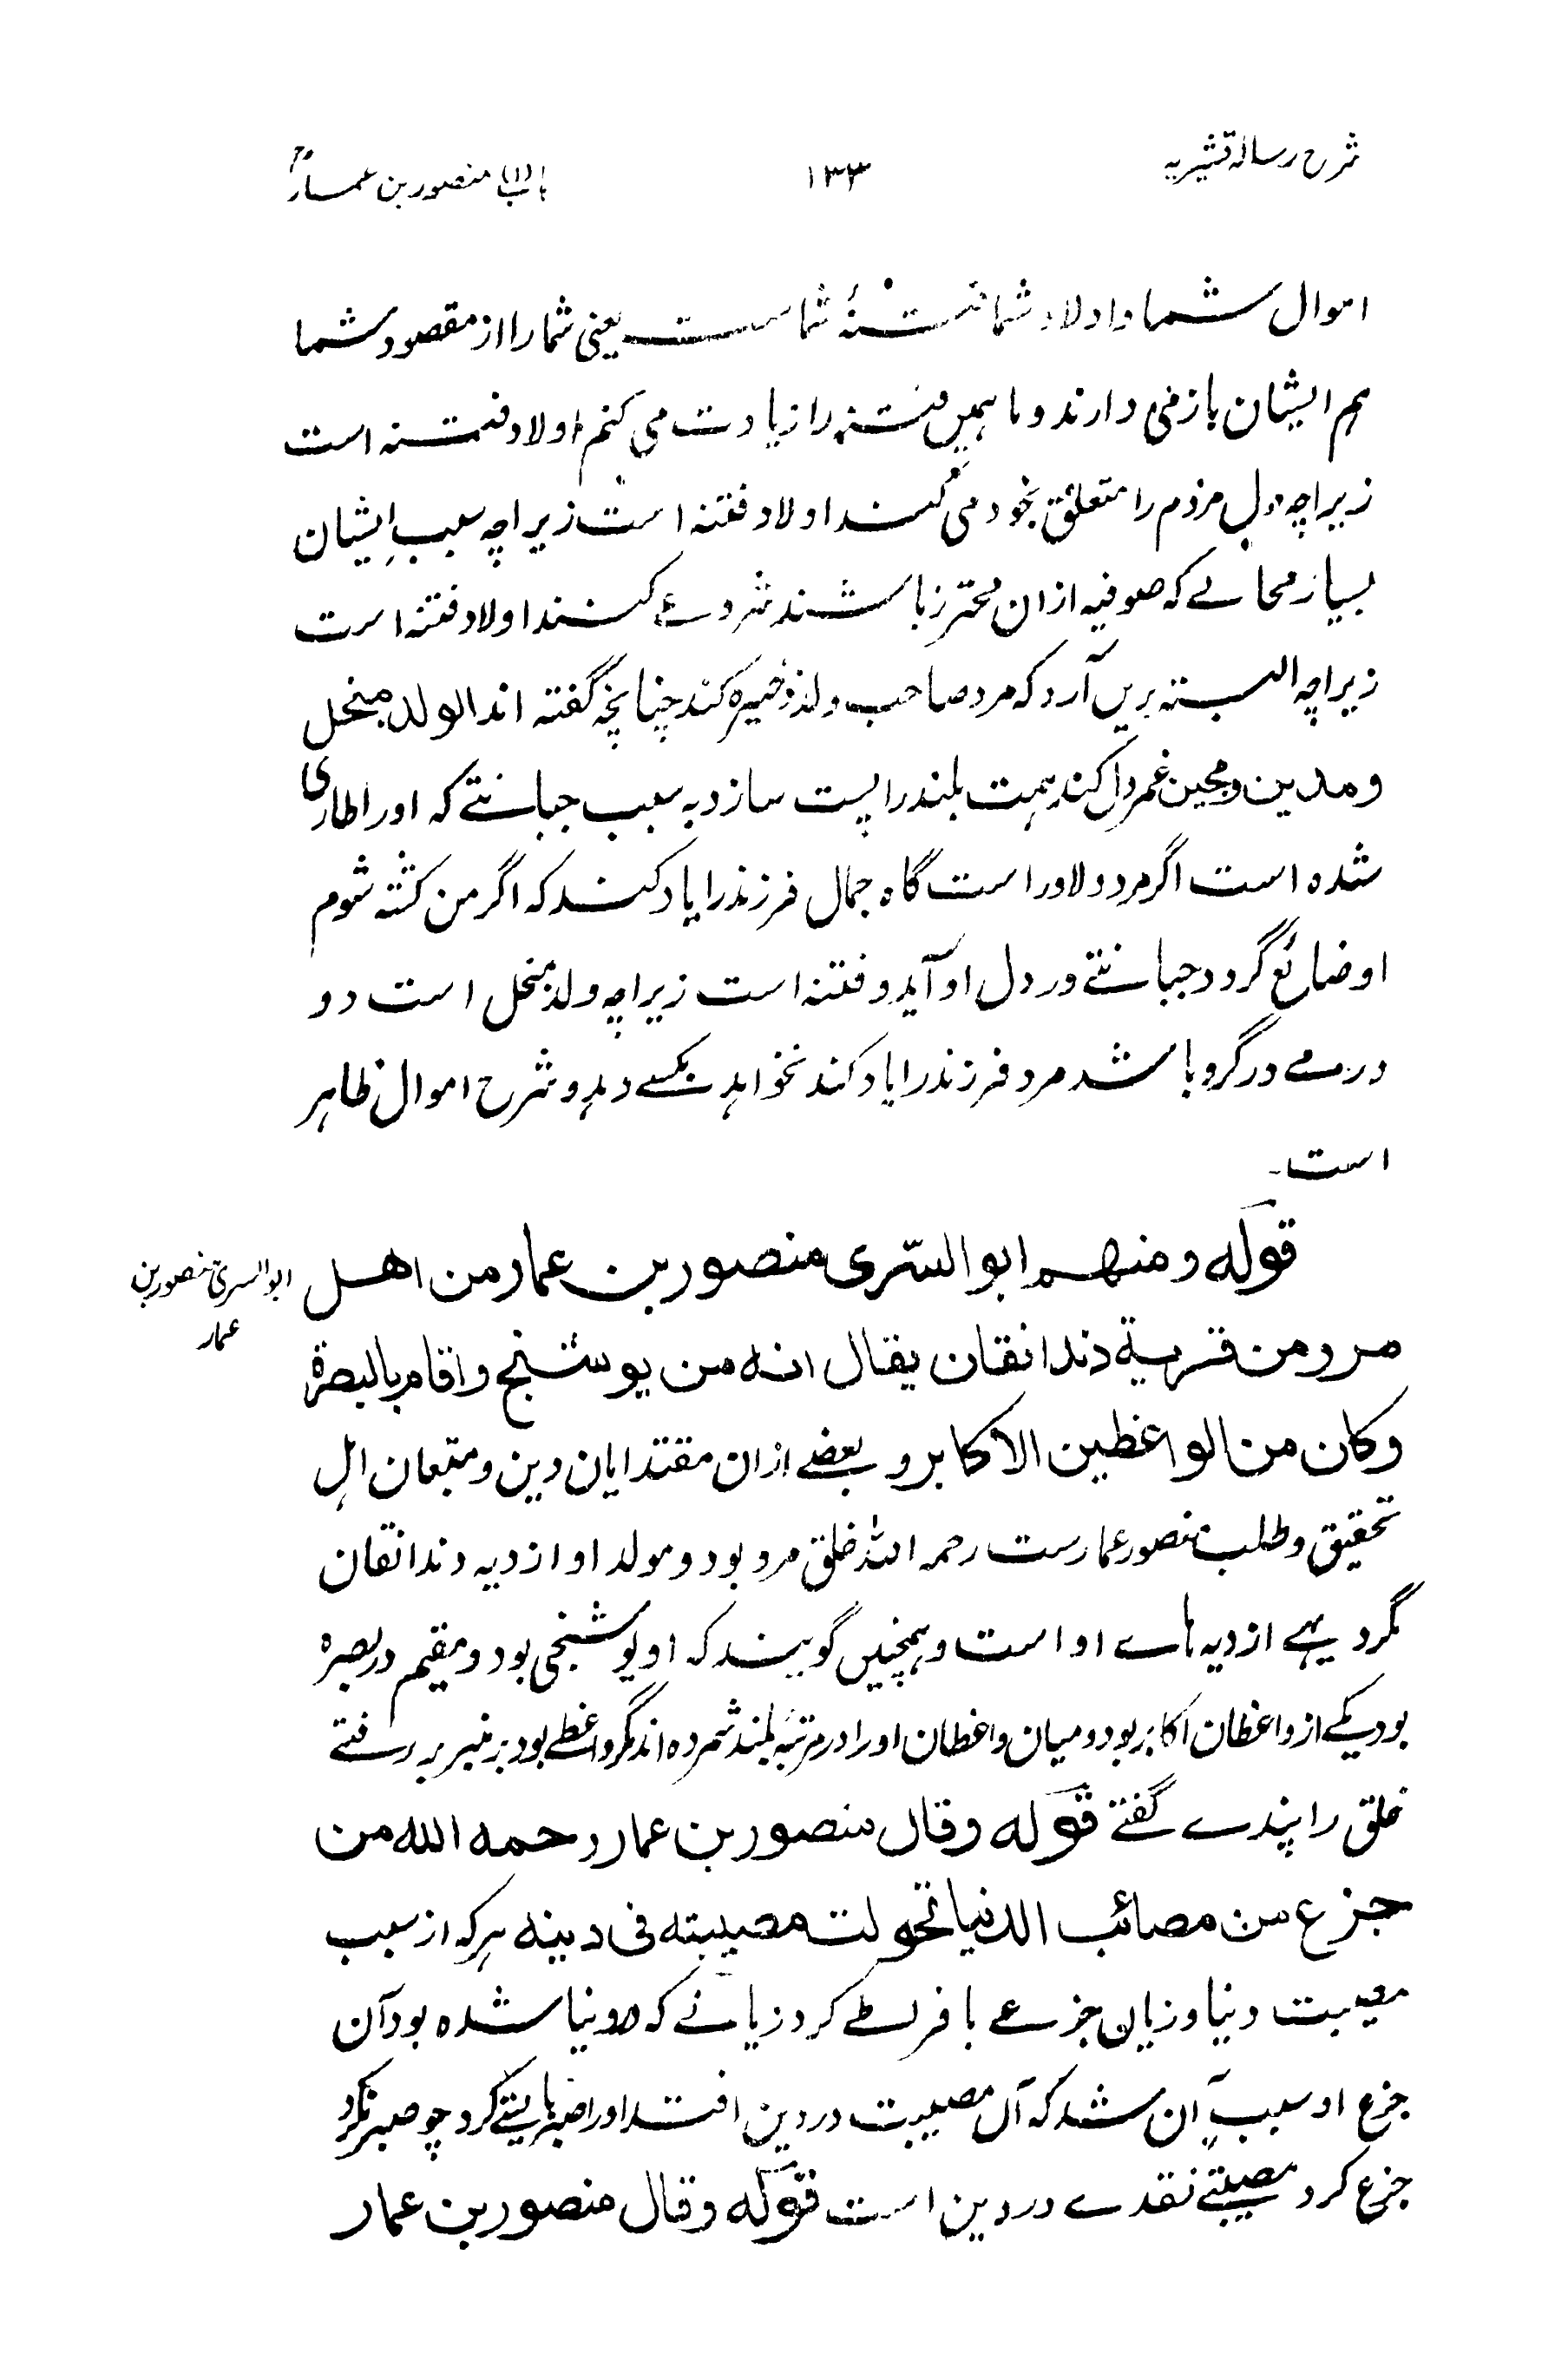 شرح رسالہ قشیریہ
۱۳۳
باب (۱) منصور بن عمارؒ
اموال شما و اولاد شما فتنۂ شماست یعنی شما را از مقصود شما
ہم ایشان باز می دارند و ما ہمیں فتنہ را زیادت می کنم اولاد فتنہ است
زیراچہ دل مردم را متعلق بخود می کنند اولاد فتنہ است زیراچہ سبب ایشان
بسیار محالے کہ صوفیہ ازان محترز باشند شروع کنند اولاد فتنہ است
زیراچہ البتہ بریں آرد کہ مرد صاحب ولد ذخیرہ کند چنانچہ گفتہ اند الولد مبخل
و مدین و مجبن غمر دل کند ہمت بلند را پست سازد بہ سبب جبانتے کہ او را طاری
شدہ است اگر مرد دلاور است گاہ جمال فرزند را یاد کند کہ اگر من کشتہ شوم
او ضائع گردد جبانتے در دل او آید و فتنہ است زیراچہ ولد مبخل است دو
درمے در گرو باشد مرد فرزند را یاد کند نخواہد بکسے دہد و شرح اموال ظاہر
است۔
قوله ومنهم ابو السّرى منصور بن عمار من اهل
ابو السری منصور بن
عمار
مرو من قرية دندانقان يقال انه من يوشنج واقام بالبصرة
وكان من الواعظين الاكابر و بعضے ازان مقتدایان دین و متبعان اہل
تحقیق و طلب منصور عمارست رحمہ اللہ خلق مرو بود و مولد او از دیہ دندانقان
مگر دیہے از دیہ ہاے او است و ہمچنیں گویند کہ او یوشنجی بود و مقیم در بصرہ
بود یکے از واعظان اکابر بود و میان واعظان او را در مرتبۂ بلند شمردہ اند مگر واعظے بود بر منبر بر رفتے
خلق را پندے گفتے قوله وقال منصور بن عمار رحمه الله من
جزع من مصائب الدنيا تحولت مصيبته فى دينه ہر کہ از سبب
مصیبت دنیا و زیان جزعے با فرطے کرد زیانے کہ در دنیا شدہ بود آن
جزع او سبب آن شد کہ آں مصیبت در دین افتد او را صبر بایستے کرد چو صبر نکرد
جزع کرد مصیبتے نقدے در دین است قوله وقال منصور بن عمار